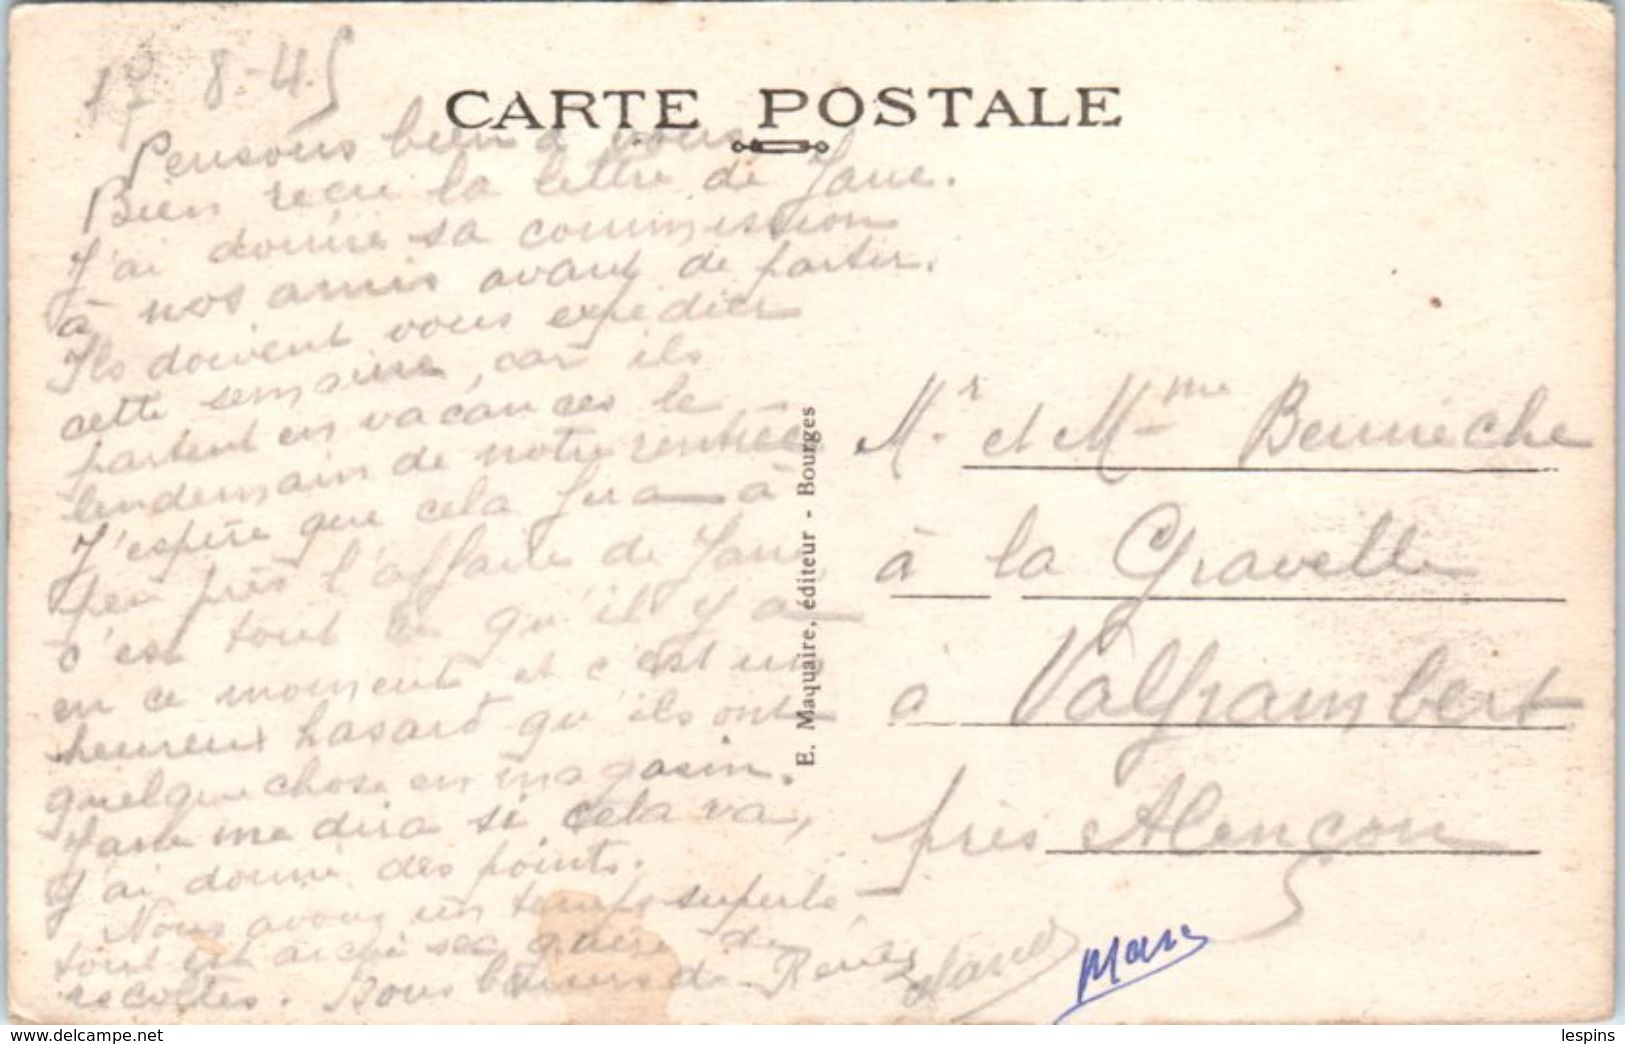 8-45
CARTE POSTALE
Pensons bien à vous
Bien reçu la lettre de Jane.
J'ai donné sa commission
à nos amis avant de partir.
Ils doivent vous expédier
cette semaine, car ils
partent en vacances le
lendemain de notre rentrée
J'espère que cela fera à
peu près l'affaire de Jane
c'est tout ce qu'il y a
en ce moment et c'est un
heureux hasard qu'ils ont
quelque chose en magasin.
Jane me dira si cela va,
J'ai donné des points.
Nous avons un temps superbe
tout est aussi sec guère de
récoltes. Bons baisers de Renée
Marc
E. Maquaire, éditeur - Bourges
Mr. et Mme Bennèche
à la Gravelle
à Valframbert
près Alençon
www.delcampe.net
lespins